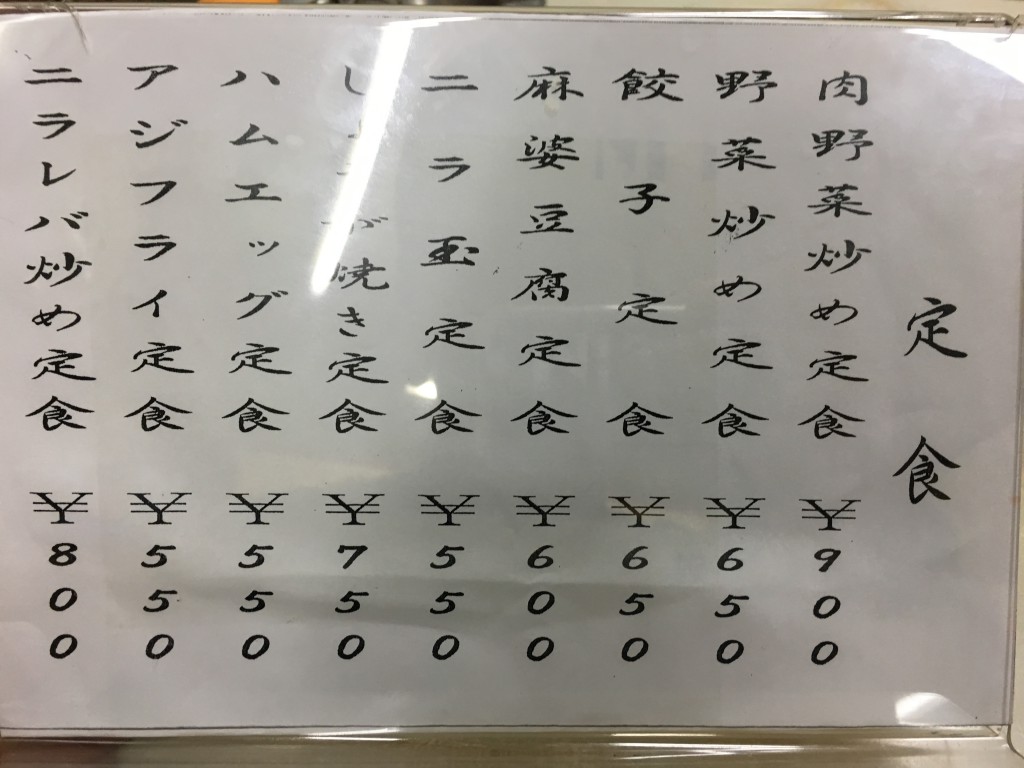 定食
肉野菜炒め定食 ¥900
野菜炒め定食 ¥650
餃子定食 ¥650
麻婆豆腐定食 ¥600
ニラ玉定食 ¥550
しょうが焼き定食 ¥750
ハムエッグ定食 ¥550
アジフライ定食 ¥550
ニラレバ炒め定食 ¥800